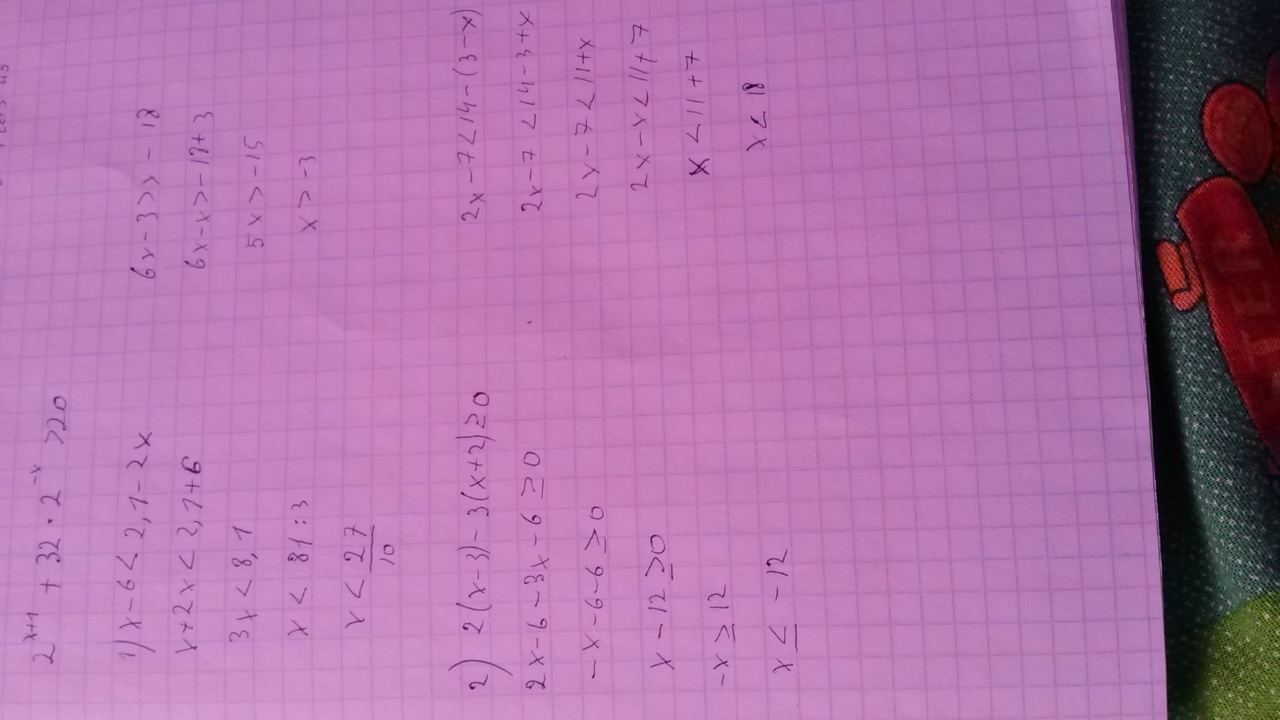 2^{x+1} + 32 · 2^{-x} > 20
1) x - 6 < 2,1 - 2x
x + 2x < 2,1 + 6
3x < 8,1
x < 81 : 3
x < 27/10
6x - 3 > x - 18
6x - x > -18 + 3
5x > -15
x > -3
2) 2(x-3) - 3(x+2) ≥ 0
2x - 6 - 3x - 6 ≥ 0
-x - 6 - 6 ≥ 0
x - 12 ≥ 0
-x ≥ 12
x ≤ -12
2x - 7 < 14 - (3 - x)
2x - 7 < 14 - 3 + x
2x - 7 < 11 + x
2x - x < 11 + 7
x < 11 + 7
x < 18